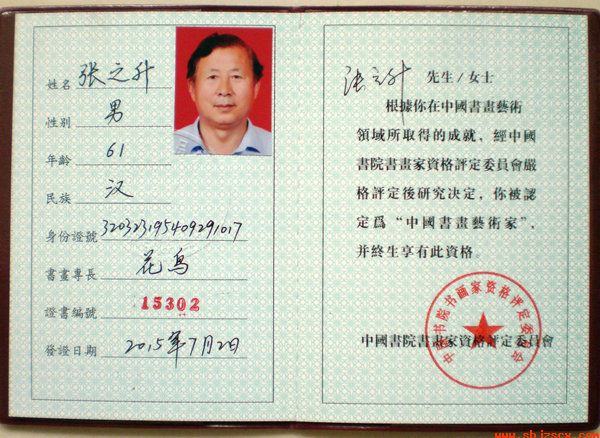 姓名 张之升
性别 男
年齡 61
民族 汉
身份證號 320323195409291017
書畫專長 花鸟
證書編號 15302
發證日期 2015年7月2日
张之升 先生/女士
根據你在中國書畫藝術
領域所取得的成就，經中國
書院書畫家資格評定委員會嚴
格評定後研究决定，你被認
定爲“中國書畫藝術家”，
并終生享有此資格。
中國書院書畫家資格評定委員會
中国书院书画家资格评定委员会
www.shjzscx.com